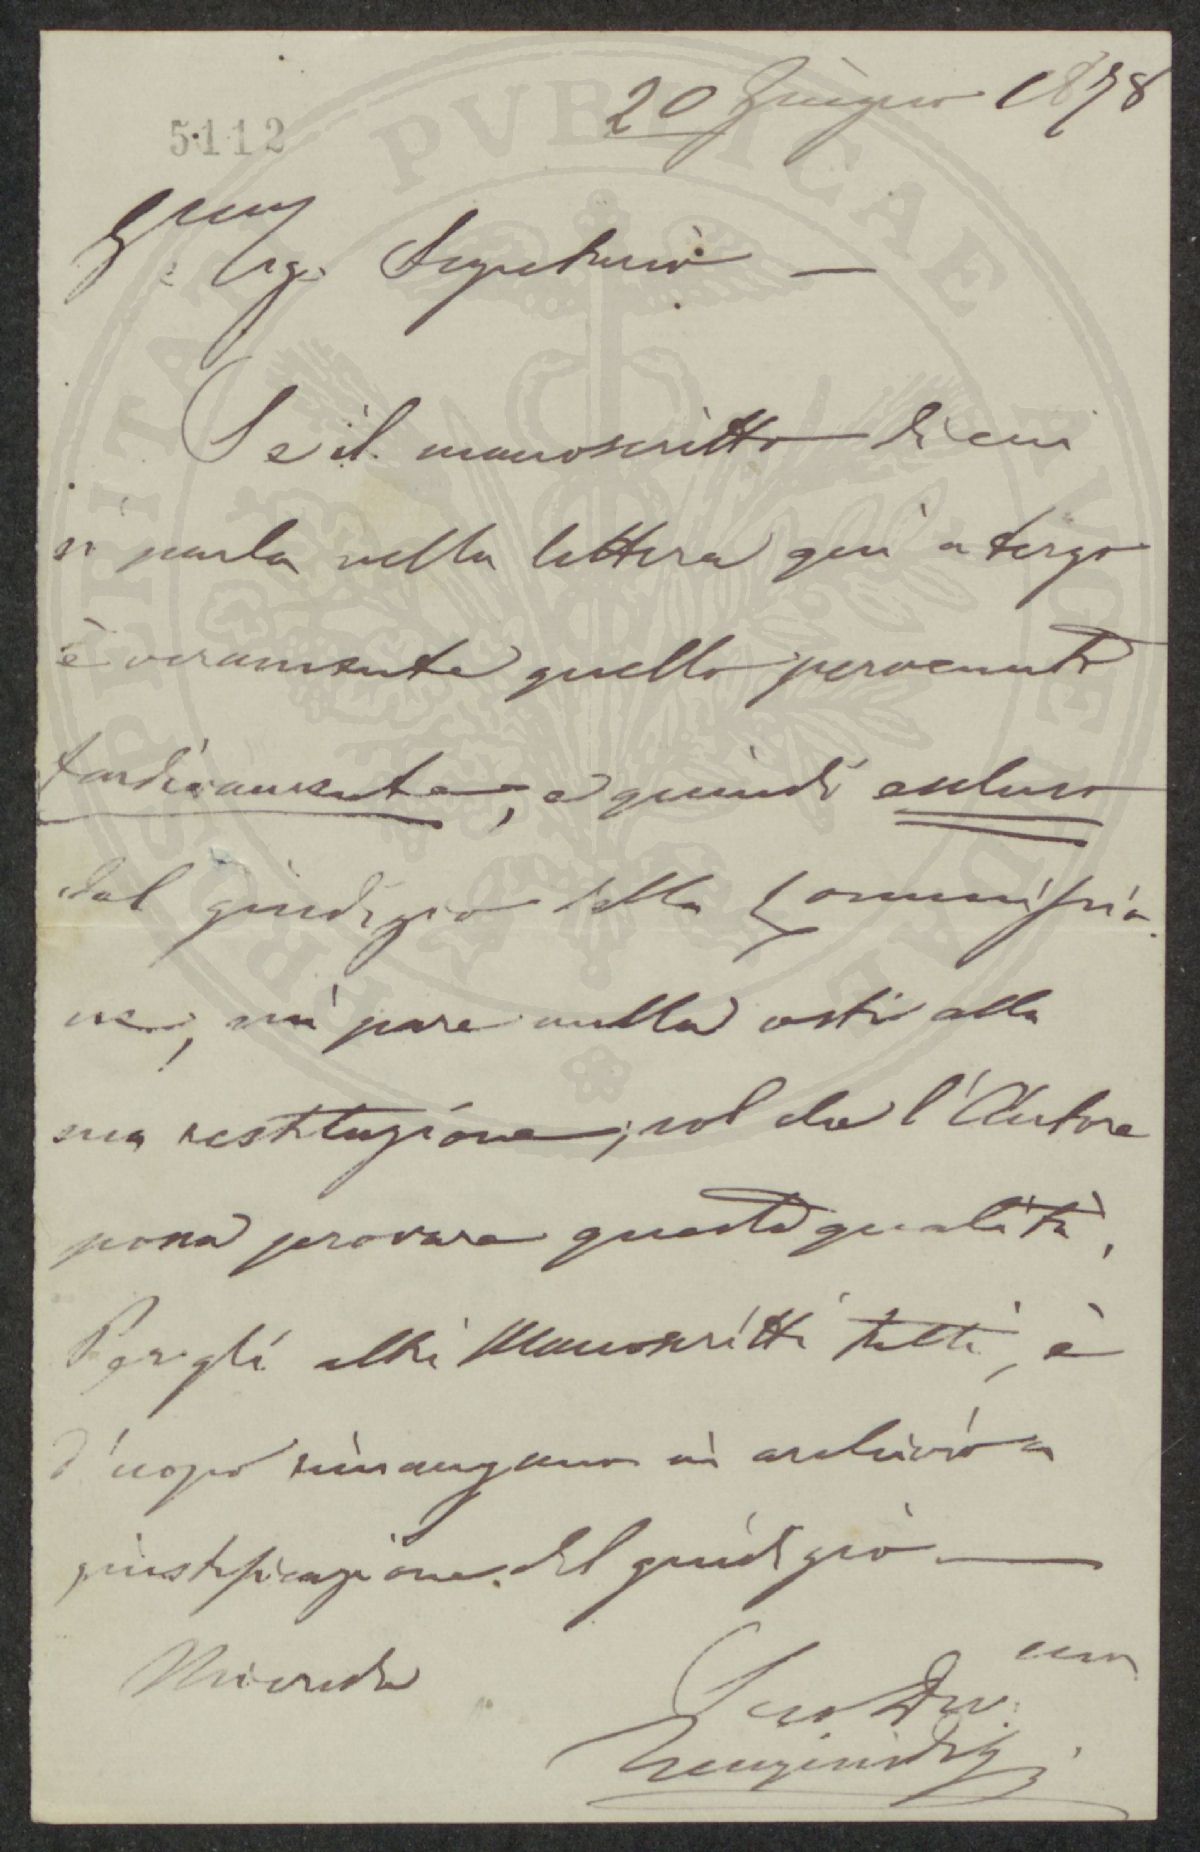 20 Giugno 1878
5112
Sig. Segretario —
Se il manoscritto di cui
si parla nella lettera quì a tergo
è veramente quello pervenuto
tardivamente, e quindi escluso
dal giudizio della Commissio
ne, mi pare nulla osti alla
sua restituzione; sol che l'Autore
possa provare questa qualità,
Per gli altri Manoscritti tutti, è
d'uopo rimangano in archivio a
giustificazione del giudizio —
Mi creda
Suo Dev.